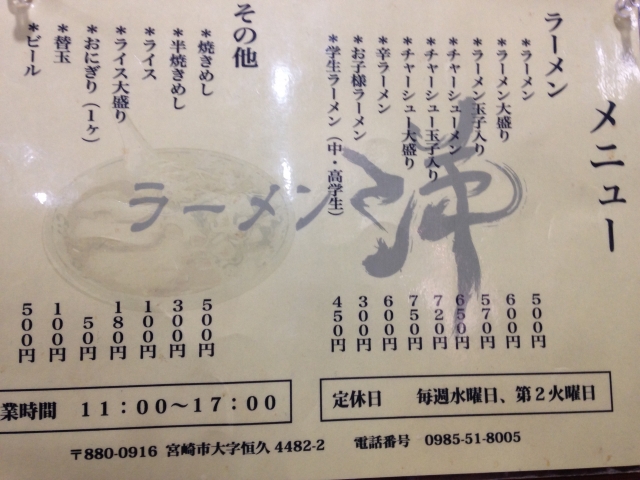 メニュー
ラーメン
*ラーメン 500円
*ラーメン大盛り 600円
*ラーメン玉子入り 570円
*チャーシューメン 650円
*チャーシュー玉子入り 720円
*チャーシュー大盛り 750円
*辛ラーメン 600円
*お子様ラーメン 300円
*学生ラーメン（中・高学生） 450円
その他
*焼きめし 500円
*半焼きめし 300円
*ライス 100円
*ライス大盛り 180円
*おにぎり（1ヶ） 50円
*替玉 100円
*ビール 500円
ラーメン
定休日 毎週水曜日、第2火曜日
業時間 11：00～17：00
〒880-0916 宮崎市大字恒久 4482-2 電話番号 0985-51-8005